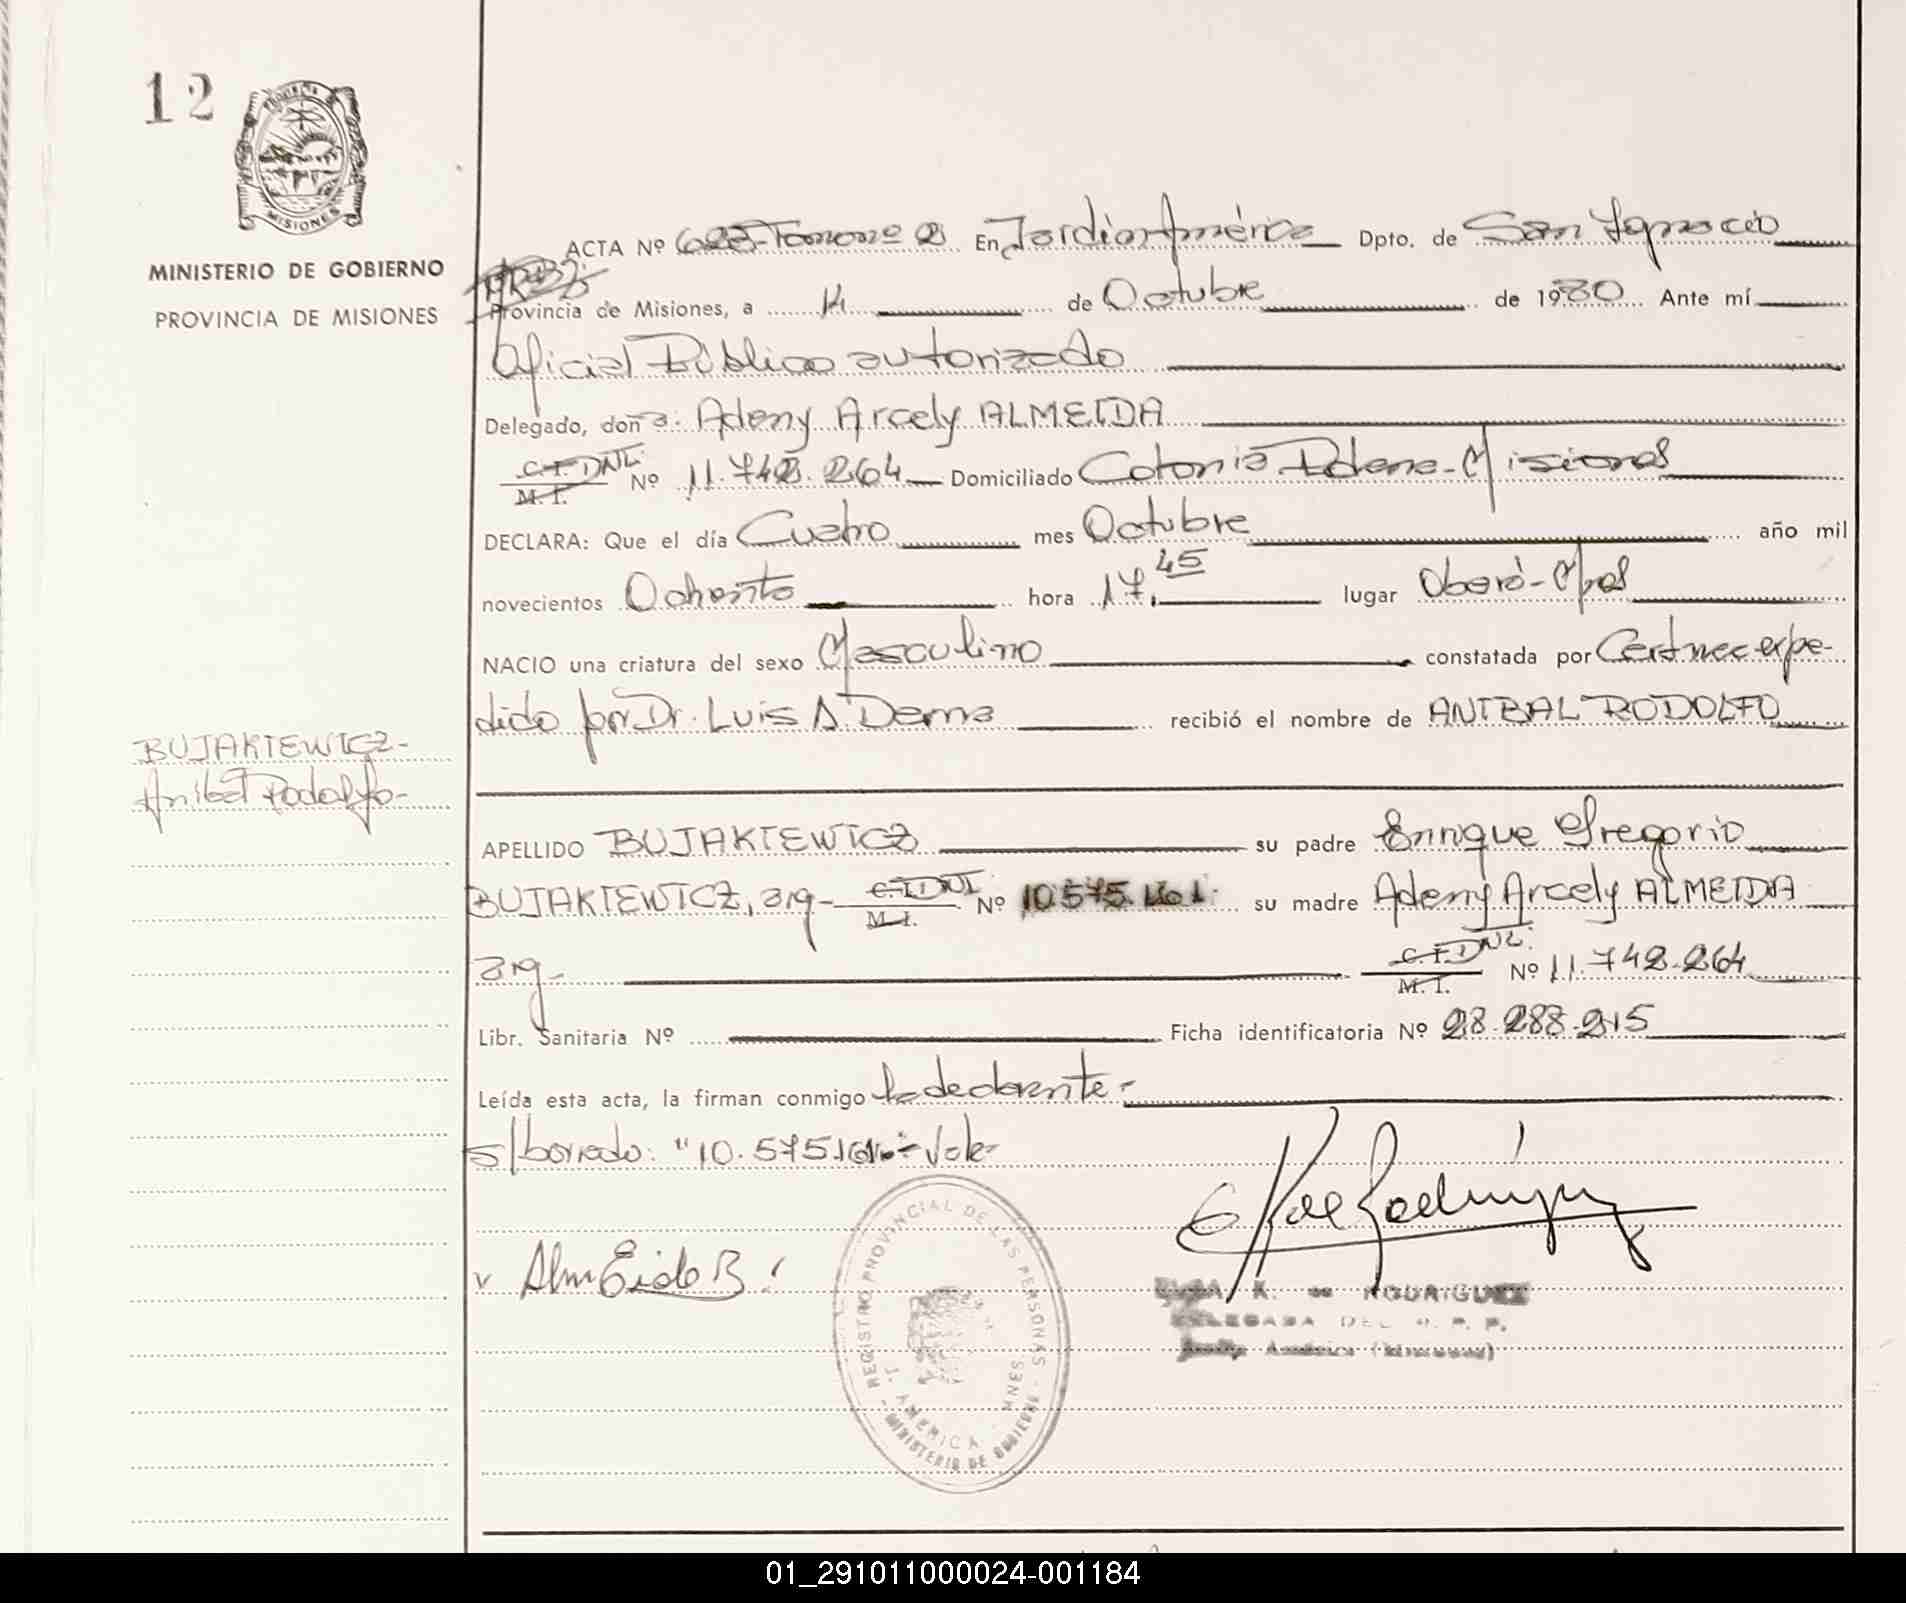 12
MISIONES
MINISTERIO DE GOBIERNO
PROVINCIA DE MISIONES
ACTA Nº 623-Tomo nº 2 En Jardín América Dpto. de San Ignacio
Provincia de Misiones, a 14 de Octubre de 1980 Ante mí
Oficial Público autorizado
Delegado, doña: Adeny Arcely ALMEIDA
C.I. DNI. M.I. Nº 11.742.264 Domiciliado Colonia Misiones
DECLARA: Que el día Cuatro mes Octubre año mil
novecientos Ochenta hora 17,45 lugar Oberá-Mnes
NACIO una criatura del sexo Masculino constatada por Cert mec expe-
dido por Dr. Luis A. Derna recibió el nombre de ANIBAL RODOLFO
BUJAKIEWICZ-
Anibal Rodolfo-
APELLIDO BUJAKIEWICZ su padre Enrique Gregorio
BUJAKIEWICZ, arg- C.I. DNI. M.I. Nº 10.575.161. su madre Adeny Arcely ALMEIDA
arg- C.I. DNI. M.I. Nº 11.742.264
Libr. Sanitaria Nº Ficha identificatoria Nº 28.288.215
Leída esta acta, la firman conmigo la declarante-
s/borrado: "10.575.161"- Vale-
AlmEida B
REGISTRO PROVINCIAL DE LAS PERSONAS - MINISTERIO DE GOBIERNO -
J. AMERICA - MNES.
K. de RODRIGUEZ
DELEGADA DEL R. P. P.
América (Misiones)
01_291011000024-001184